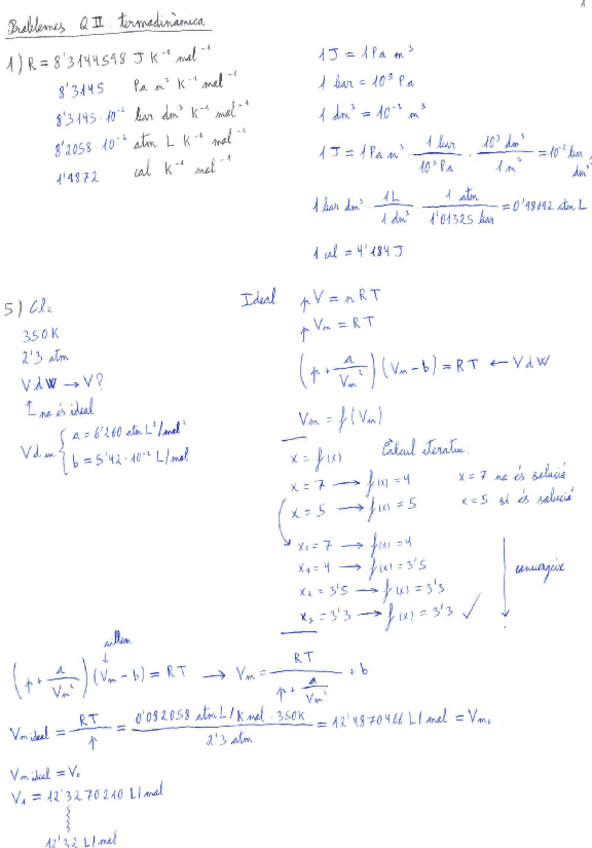 1
Problemes Q II: termodinàmica
1) R = 8'3144598 J K⁻¹ mol⁻¹
8'3145 Pa m³ K⁻¹ mol⁻¹
8'3145·10⁻² bar dm³ K⁻¹ mol⁻¹
8'2058·10⁻² atm L K⁻¹ mol⁻¹
1'9872 cal K⁻¹ mol⁻¹
1 J = 1 Pa m³
1 bar = 10⁵ Pa
1 dm³ = 10⁻³ m³
1 J = 1 Pa m³ · 1 bar / 10⁵ Pa · 10³ dm³ / 1 m³ = 10⁻² bar dm³
1 bar dm³ · 1L / 1 dm³ · 1 atm / 1'01325 bar = 0'98692 atm L
1 cal = 4'184 J
5) Cl₂
350K
2'3 atm
VdW → V?
↑ no és ideal
VdW { a = 6'260 atm L²/mol²
b = 5'42·10⁻² L/mol
Ideal pV = nRT
pVm = RT
(p + a/Vm²)(Vm - b) = RT ← VdW
Vm = f(Vm)
x = f(x) Càlcul iteratiu.
x = 7 → f(x) = 4 x = 7 no és solució
x = 5 → f(x) = 5 x = 5 sí és solució
x₀ = 7 → f(x) = 4
x₁ = 4 → f(x) = 3'5
x₂ = 3'5 → f(x) = 3'3
x₃ = 3'3 → f(x) = 3'3 ✓
convergeix
aïllem
(p + a/Vm²)(Vm - b) = RT → Vm = RT / (p + a/Vm²) + b
Vm ideal = RT/p = 0'082058 atm L/K mol · 350K / 2'3 atm = 12'4870466 L/mol = Vm₀
Vm ideal = V₀
V₁ = 12'3270210 L/mol
12'32 L/mol